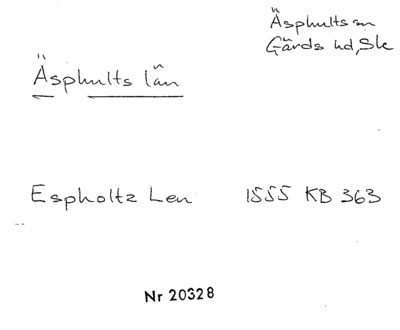 Äsphults sn
Gärds hd, Sk
Äsphults län
Espholtz Len 1555 KB 363
Nr 20328